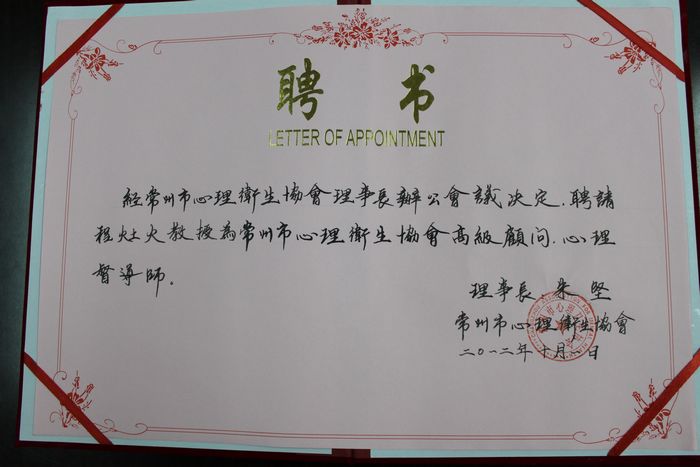 聘书
LETTER OF APPOINTMENT
經常州市心理衛生協會理事長辦公會議决定.聘請
程灶火教授為常州市心理衛生協會高級顧问.心理
督導師。
理事長 朱堅
常州市心理衛生協會
二〇一二年十月 日